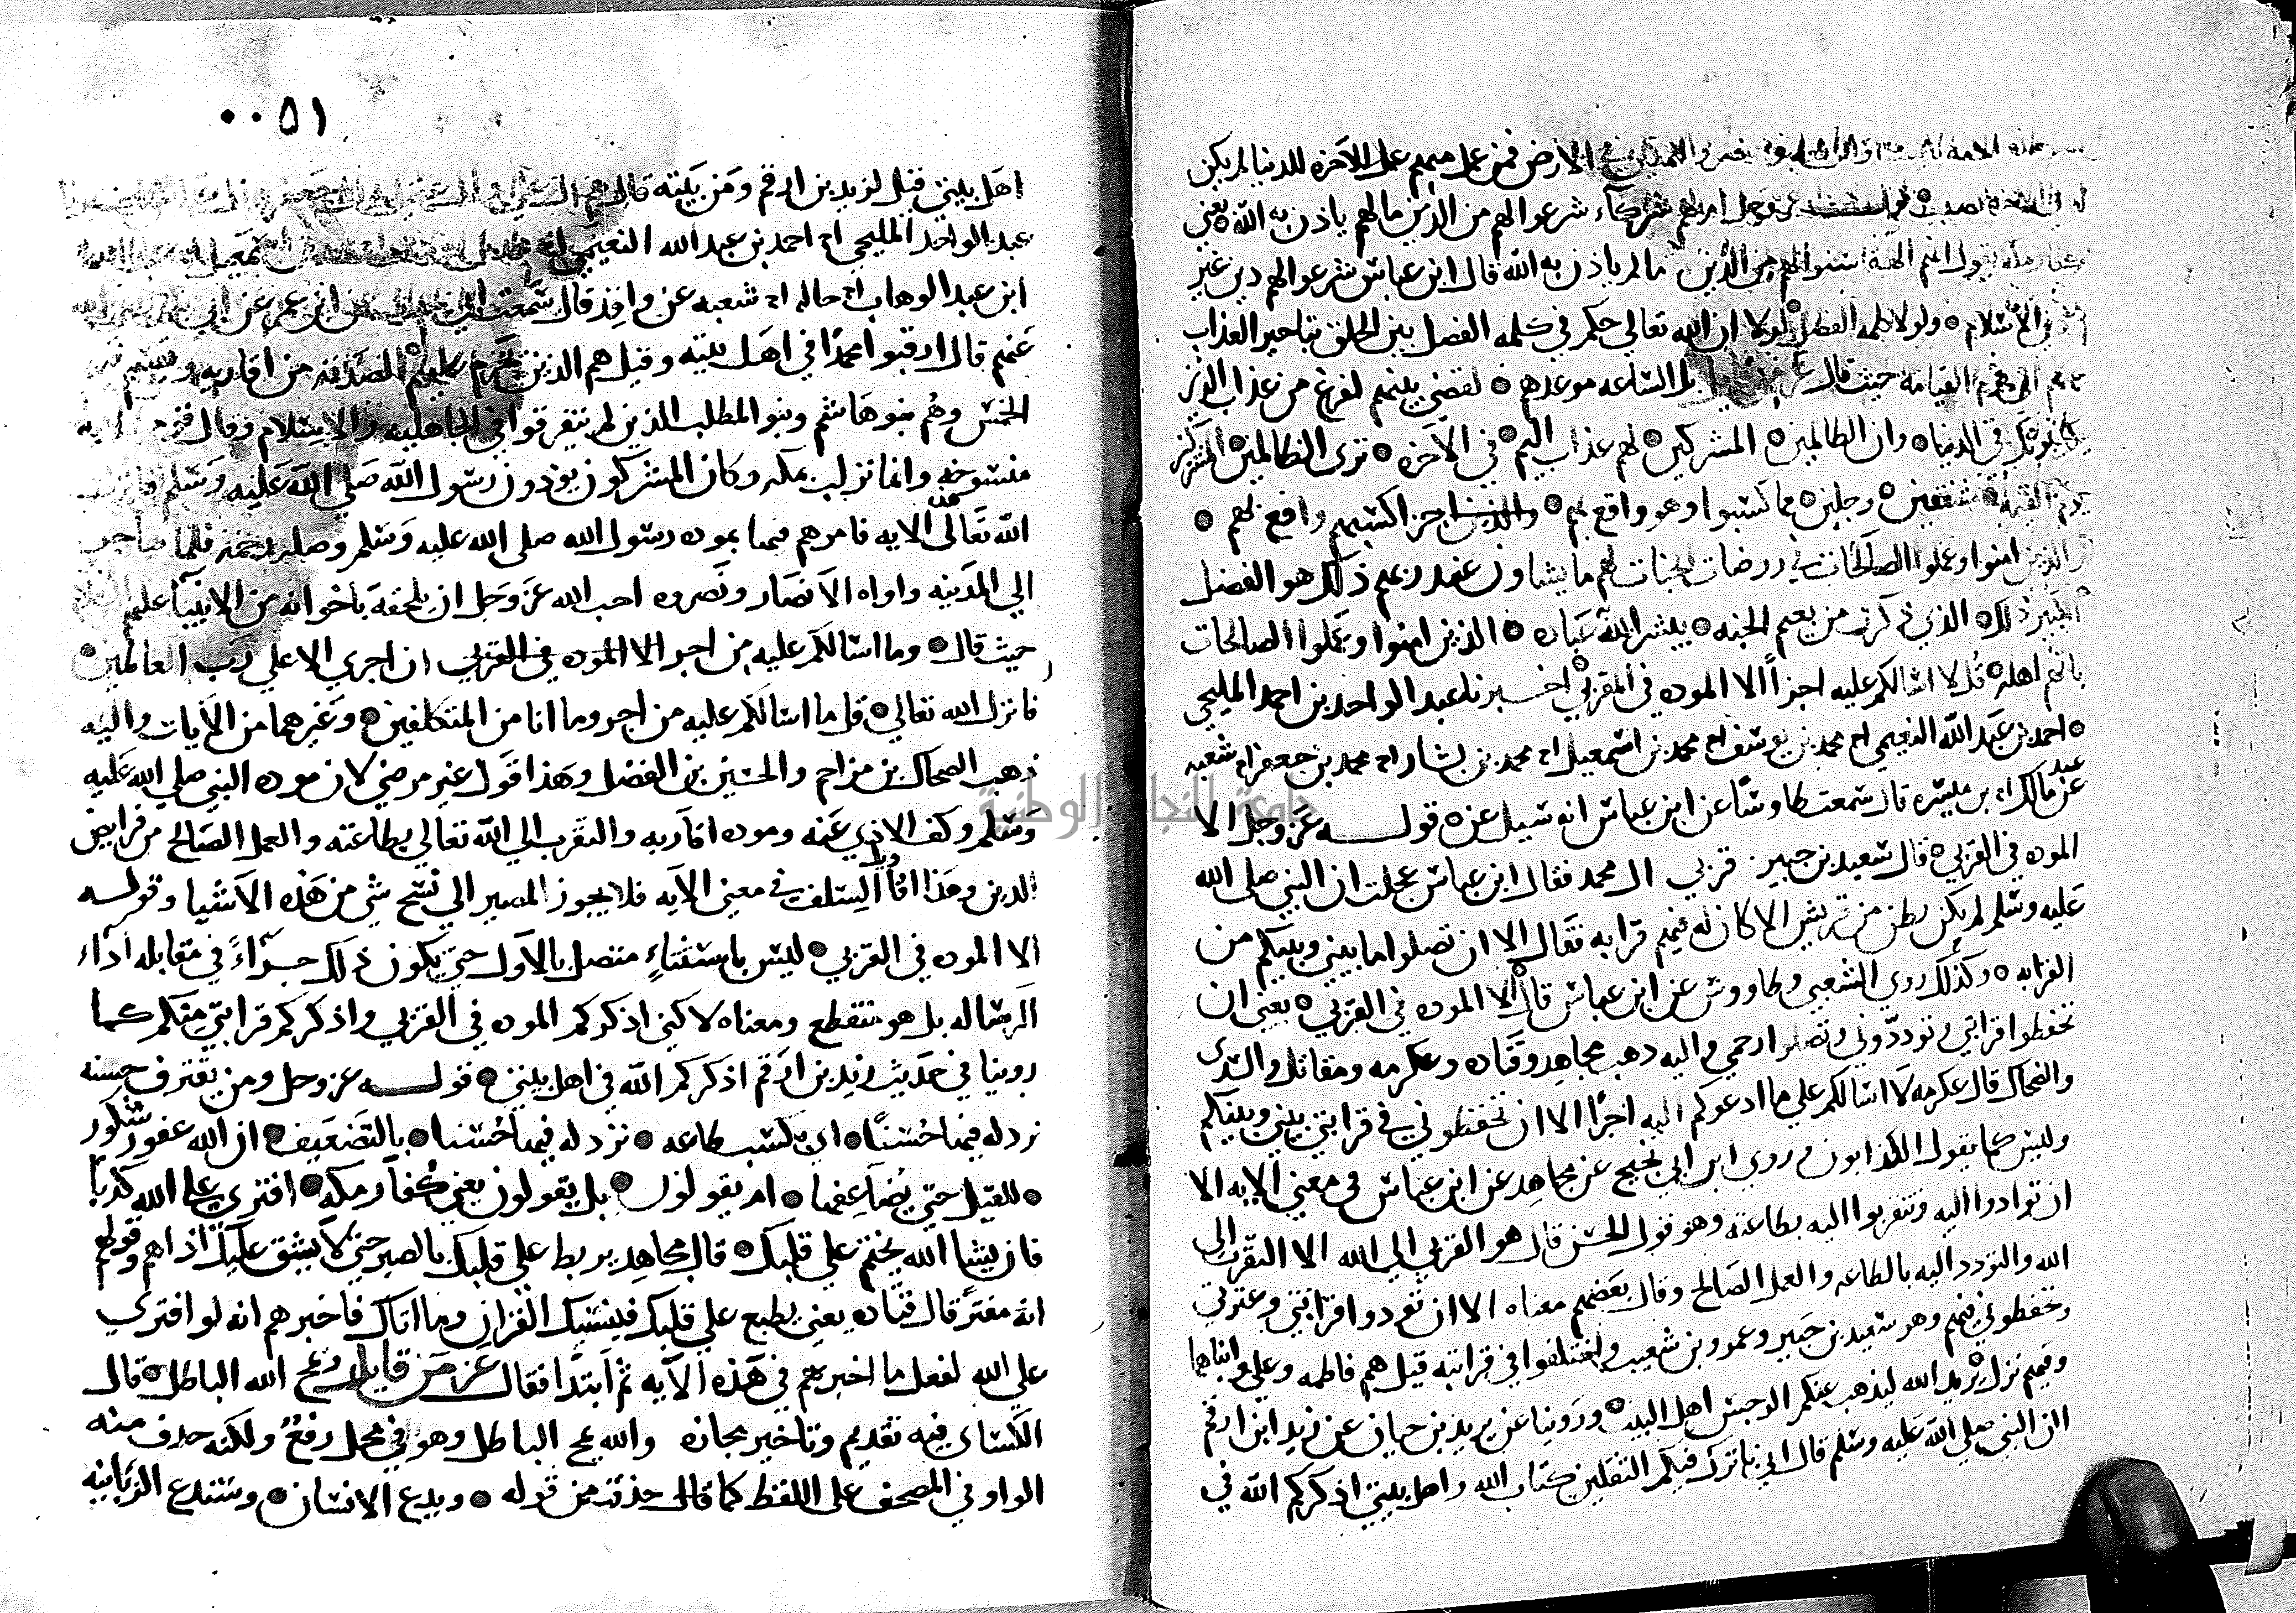 الارض فمن عمل منهم عمل الاخره للدنيا لم يكن
عز وجل ام لهم شركآء شرعوا لهم من الدين مالم ياذن به الله يعني
يقول الهم الهة سنوا لهم من الدين مالم ياذن به الله قال ابن عباس شرعوا لهم دين غير
الاسلام ولولا كلمه الفصل لولا ان الله تعالي حكم في كلمه الفصل بين الخلق بتاخير العذاب
الي يوم القيامه حيث قال بل الساعه موعدهم لقضي بينهم لفرغ من عذاب الذين
في الدنيا وان الظالمين المشركين لهم عذاب اليم في الاخره تري الظالمين المشركين
يوم القيمه مشفقين وجلين مما كسبوا وهو واقع بهم جزا كسبهم واقع بهم
والذين امنوا وعملوا الصالحات في روضات الجنات لهم ما يشاون عند ربهم ذلك هو الفضل
الكبير ذلك الذي ذكرت من نعيم الجنه يبشر الله عباده الذين امنوا وعملوا الصالحات
بانهم اهله قل لا اسالكم عليه اجراً الا الموده في القربي اخبرنا عبد الواحد بن احمد المليحي
احمد بن عبد الله النعيمي اخ محمد بن يوسف اخ محمد بن اسمعيل اخ محمد بن بشار اخ محمد بن جعفر اخ شعبه
عن عبد المالك بن ميسره قال سمعت طاوسًا عن ابن عباس انه سيل عن قوله عز وجل الا
الموده في القربي قال سعيد بن جبير قربي ال محمد فقال ابن عباس عجلت ان النبي صلي الله
عليه وسلم لم يكن بطن من قريش الا كان له فيهم قرابه فقال الا ان تصلوا ما بيني وبينكم من
القرابه وكذلك روي الشعبي وطاووس عن ابن عباس قال الا الموده في القربي يعني ان
تحفظوا قرابتي وتودّوني وتصلوا رحمي واليه ذهب مجاهد وقتاده وعكرمه ومقاتل والسدي
والضحاك قال عكرمه لا اسالكم علي ما ادعوكم اليه اجرًا الا ان تحفظوني في قرابتي بيني وبينكم
وليس كما يقول الكذابون وروي ابن ابي نجيح عن مجاهد عن ابن عباس في معني الايه الا
ان توادوا اليه وتتقربوا اليه بطاعته وهو قول الحسن قال هو القربي الي الله الا التقرب الي
الله والتودد اليه بالطاعه والعمل الصالح وقال بعضهم معناه الا ان تودوا قرابتي وعترتي
وتحفظوني فيهم وهو سعيد بن جبير وعمرو بن شعيب واختلفوا في قرابته قيل هم فاطمه وعلي وابناها
وفيهم نزل يريد الله ليذهب عنكم الرجس اهل البيت وروينا عن يزيد بن حيان عن زيد ابن ارقم
ان النبي صلي الله عليه وسلم قال اني تارك فيكم الثقلين كتاب الله واهل بيتي اذكركم الله في
٠٠٥١
اهل بيتي قيل لزيد بن ارقم ومن بيته قال هم ال علي
عبد الواحد المليحي اخ احمد بن عبد الله النعيمي اخ
ابن عبد الوهاب اخ خالد اخ شعبه عن واقد قال سمعت ابي عن ابن عمر عن ابي
عنهم قال ارقبوا محمدًا في اهل بيته وقيل هم الذين تحرم عليهم الصدقه من اقاربه
الخمس وهُم بنو هاشم وبنو المطلب الذين لم يتفرقوا في الجاهليه والاسلام وقال قوم
منسوخه وانما نزلت بمكه وكان المشركون يوذون رسول الله صلي الله عليه وسلم
الله تعالي هذه الايه فامرهم فيها بموده رسول الله صلي الله عليه وسلم وصله رحمه فلما هاجر
الي المدينه واواه الانصار ونصروه احب الله عز وجل ان يلحقه باخوانه من الانبيا عليهم
حيث قال وما اسالكم عليه من اجر الا الموده في القربي ان اجري الا علي رب العالمين
فانزل الله تعالي قل ما اسالكم عليه من اجر وما انا من المتكلفين وغيرهما من الايات واليه
ذهب الضحاك بن مزاحم والحسين بن الفضل وهذا قول غير مرضي لان موده النبي صلي الله عليه
وسلم وكف الاذي عنه وموده اقاربه والتقرب الي الله تعالي بطاعته والعمل الصالح من فرايض
الدين وهذا اقاويل السلف في معني الايه فلا يجوز المصير الي نسخ شي من هذه الاشيا وقوله
الا الموده في القربي ليس باستثناءٍ متصل بالاول حتي يكون ذلك جزآءً في مقابله ادآء
الرساله بل هو منقطع ومعناه لاكني اذكركم الموده في القربي واذكركم قرابتي منكم كما
روينا في حديث زيد بن ارقم اذكركم الله في اهل بيتي قوله عز وجل ومن يقترف حسنه
نزد له فيها حُسنًا اي يكتسب طاعه نزد له فيها حُسنا بالتضعيف ان الله غفور شكور
للقليل حتي يضاعفها ام يقولون بل يقولون يعني كفار مكه افتري علي الله كذبا
فان يشا الله يختم علي قلبك قال مجاهد يربط علي قلبك بالصبر حتي لا يشق عليك اذاهم وقولهم
انه مفتر قال قتاده يعني يطبع علي قلبك فينسيك القران وما اتاك فاخبرهم انه لو افتري
علي الله لفعل ما اخبرهم في هذه الايه ثم ابتدا فقال عز من قايل ويمح الله الباطل قال
الكسائي فيه تقديم وتاخير مجازه والله يمح الباطل وهو في محل رفعٌ ولكنه حذف منه
الواو في المصحف علي اللفظ كما قال حذفت من قوله ويدع الانسان وسندع الزبانيه
جامعة النجاح الوطنية